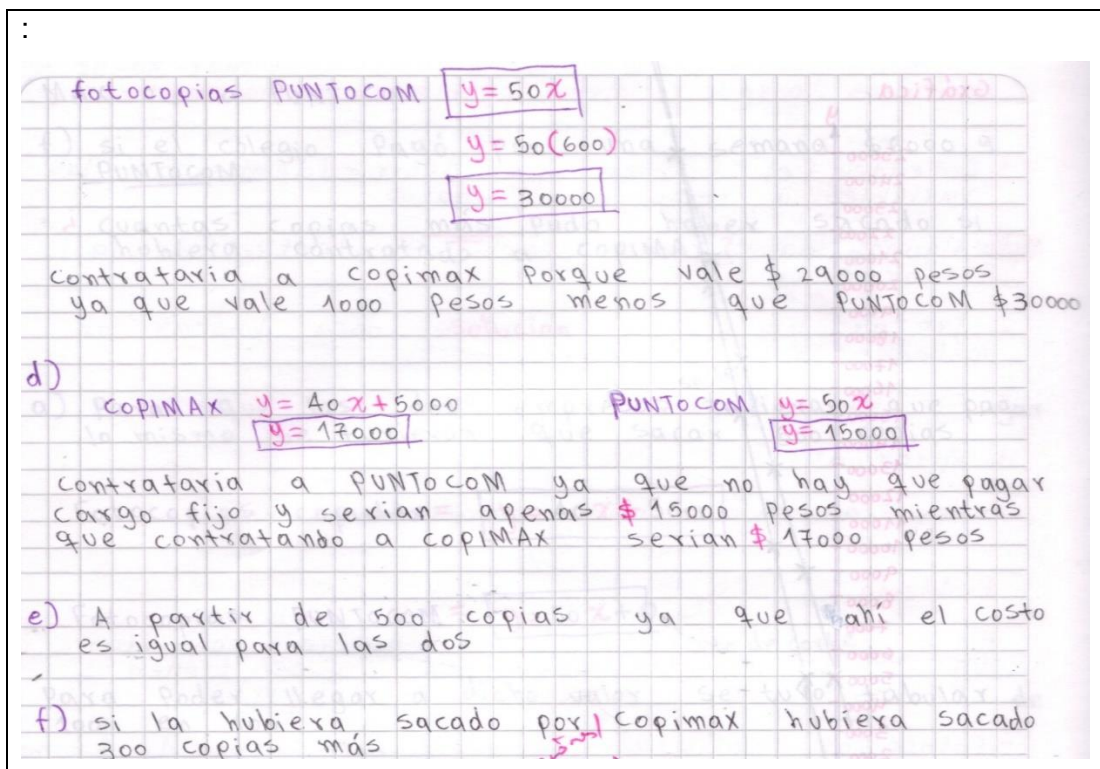 :
fotocopias PUNTOCOM y = 50x
y = 50(600)
y = 30000
contrataria a copimax porque vale $ 29000 pesos
ya que vale 1000 pesos menos que PUNTOCOM $30000
d)
COPIMAX y = 40x + 5000 PUNTOCOM y = 50x
y = 17000 y = 15000
contrataria a PUNTOCOM ya que no hay que pagar
cargo fijo y serian apenas $ 15000 pesos mientras
que contratando a COPIMAX serian $ 17000 pesos
e) A partir de 500 copias ya que ahí el costo
es igual para las dos
f) si la hubiera sacado por copimax hubiera sacado
300 copias más